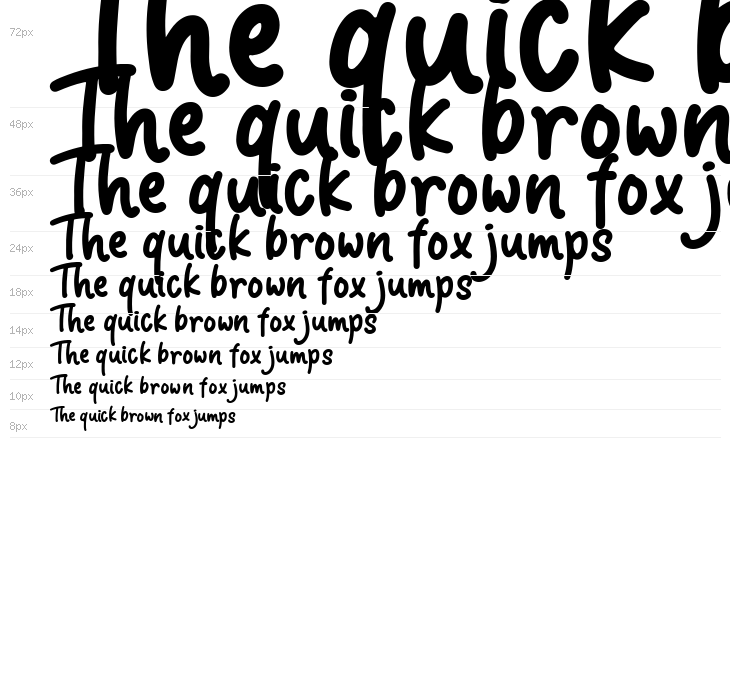 72px The quick b
48px The quick brown
36px The quick brown fox j
24px The quick brown fox jumps
18px The quick brown fox jumps
14px The quick brown fox jumps
12px The quick brown fox jumps
10px The quick brown fox jumps
8px The quick brown fox jumps